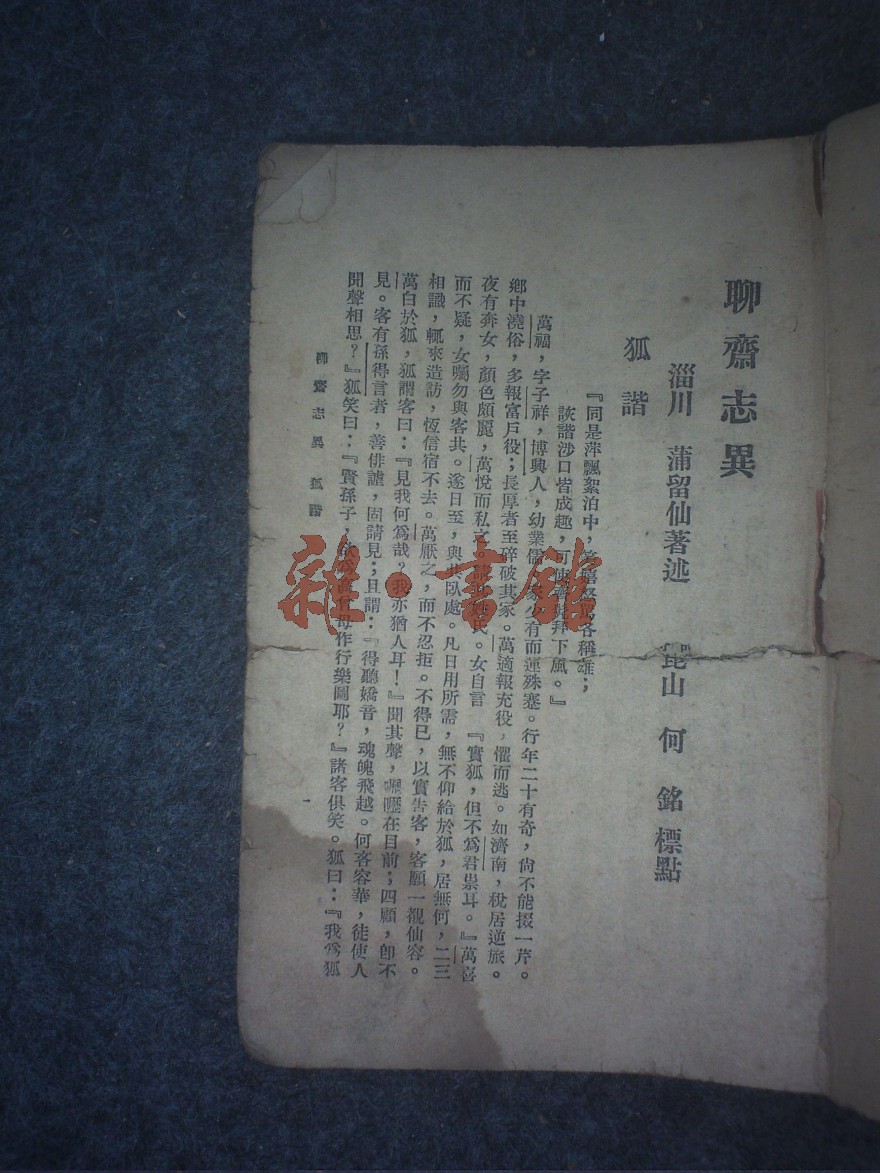 聊齋志異
淄川 蒲留仙著述 崑山 何銘標點
狐諧
『同是萍飄絮泊中,各稱雄;
詼諧涉口皆成趣,可使拜下風。』
萬福,字子祥,博興人,幼業儒,家少有而運殊蹇。行年二十有奇,尙不能掇一芹。
鄉中澆俗,多報富戶役;長厚者至碎破其家。萬適報充役,懼而逃。如濟南,稅居逆旅。
夜有奔女,顏色頗麗,萬悅而私之。氏。女自言『實狐,但不爲君祟耳。』萬喜
而不疑,女囑勿與客共。遂日至,與共臥處。凡日用所需,無不仰給於狐,居無何,二三
相識,輒來造訪,恆信宿不去。萬厭之,而不忍拒。不得已,以實告客,客願一覩仙容。
萬白於狐,狐謂客曰:『見我何爲哉?我亦猶人耳!』聞其聲,嚦嚦在目前;四顧,卽不
見。客有孫得言者,善俳謔,固請見;且謂:『得聽嬌音,魂魄飛越。何吝容華,徒使人
聞聲相思?』狐笑曰:『賢孫子,欲爲高曾母作行樂圖耶?』諸客俱笑。狐曰:『我爲狐
聊齋志異 狐諧
一
雜·書館